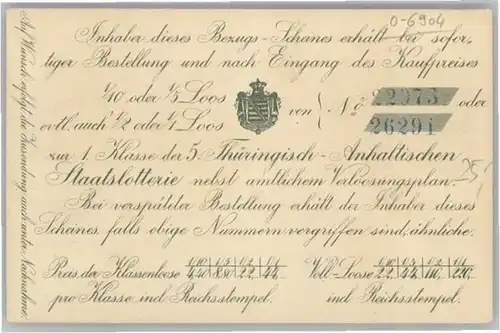 0-6904
Inhaber dieses Bezugs-Scheines erhält bei sofor-
tiger Bestellung und nach Eingang des Kaufpreises
1/10 oder 1/5 Loos
evtl. auch 1/2 oder 1/1 Loos
von { No 22073 oder
26291
zur 1 Klasse der 5. Thüringisch-Anhaltischen
Staatslotterie nebst amtlichem Verloosungsplan.
Bei verspäteter Bestellung erhält der Inhaber dieses
Scheines, falls obige Nummern vergriffen sind, ähnliche.
Preis der Klassenloose 1/10 1/5 1/2 1/1
4.40 8.80 22.- 44.-
pro Klasse incl Reichsstempel.
Voll-Loose 1/10 1/5 1/2 1/1
22.- 44.- 110.- 220.-
incl Reichsstempel.
Auf Wunsch erfolgt die Zusendung auch unter Nachnahme.